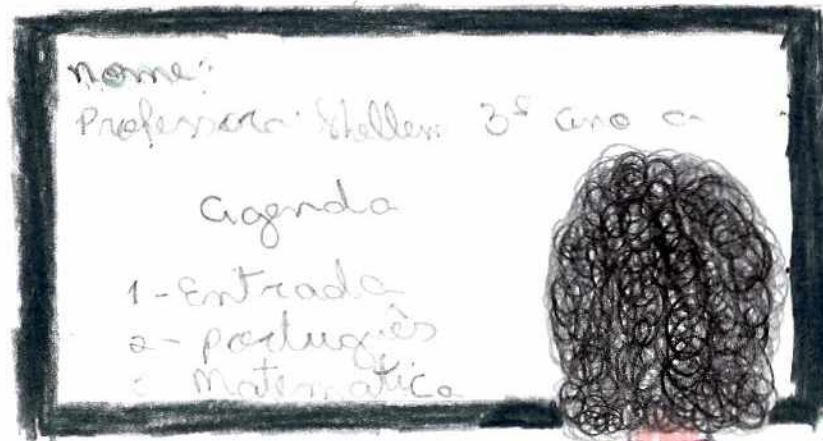 nome:
Professora: Shellen 3º ano a
agenda
1-Entrada
2-português
3 Matemática